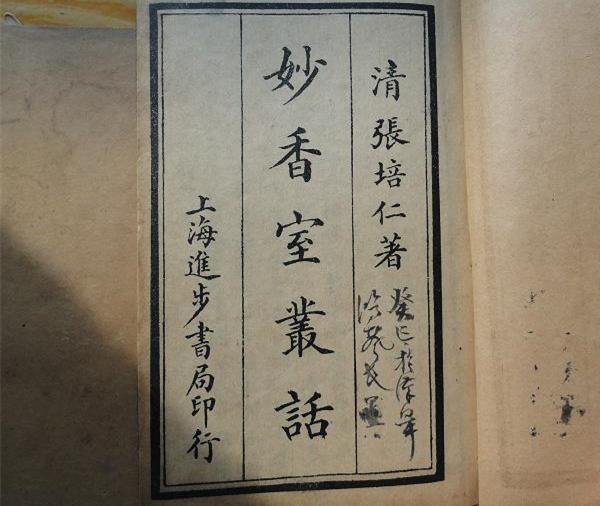 清張培仁著
癸巳於
妙香室叢話
上海進步書局印行